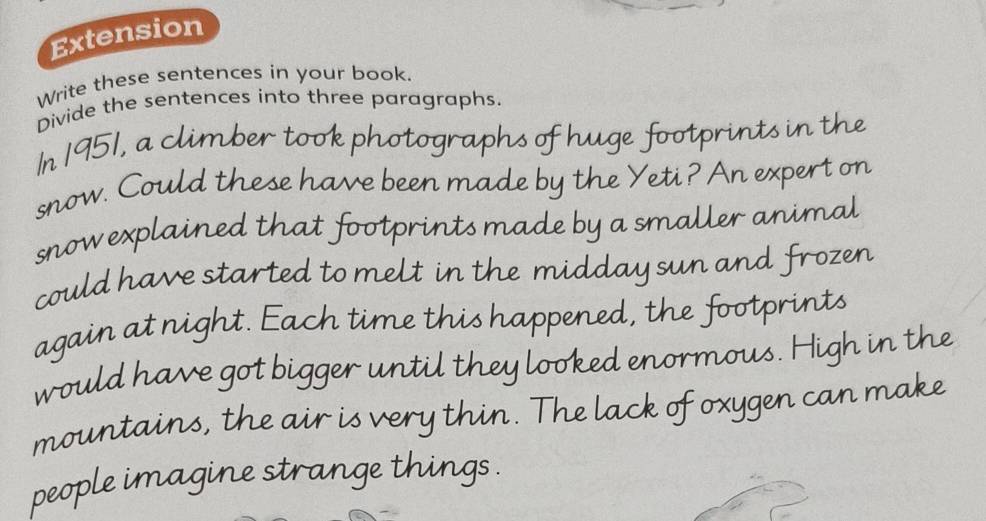 Extension
Write these sentences in your book.
Divide the sentences into three paragraphs.
In 1951, a climber took photographs of huge footprints in the
snow. Could these have been made by the Yeti? An expert on
snow explained that footprints made by a smaller animal
could have started to melt in the midday sun and frozen
again at night. Each time this happened, the footprints
would have got bigger until they looked enormous. High in the
mountains, the air is very thin. The lack of oxygen can make
people imagine strange things.